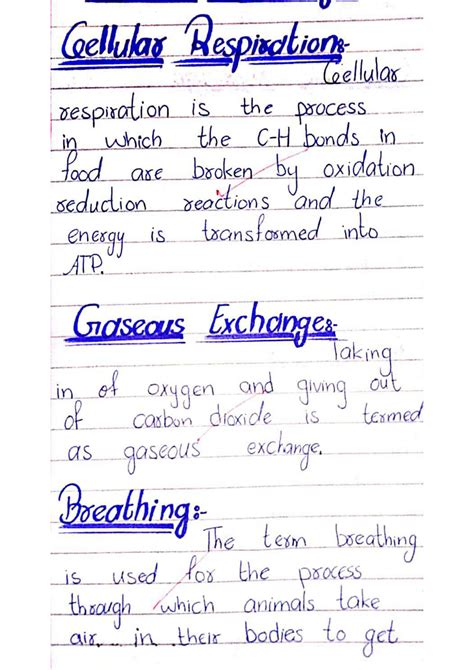 Cellular Respiration:-
Cellular
respiration is the process
in which the C-H bonds in
food are broken by oxidation
reduction reactions and the
energy is transformed into
ATP.
Gaseous Exchange:-
Taking
in of oxygen and giving out
of carbon dioxide is termed
as gaseous exchange.
Breathing:-
The term breathing
is used for the process
through which animals take
air in their bodies to get